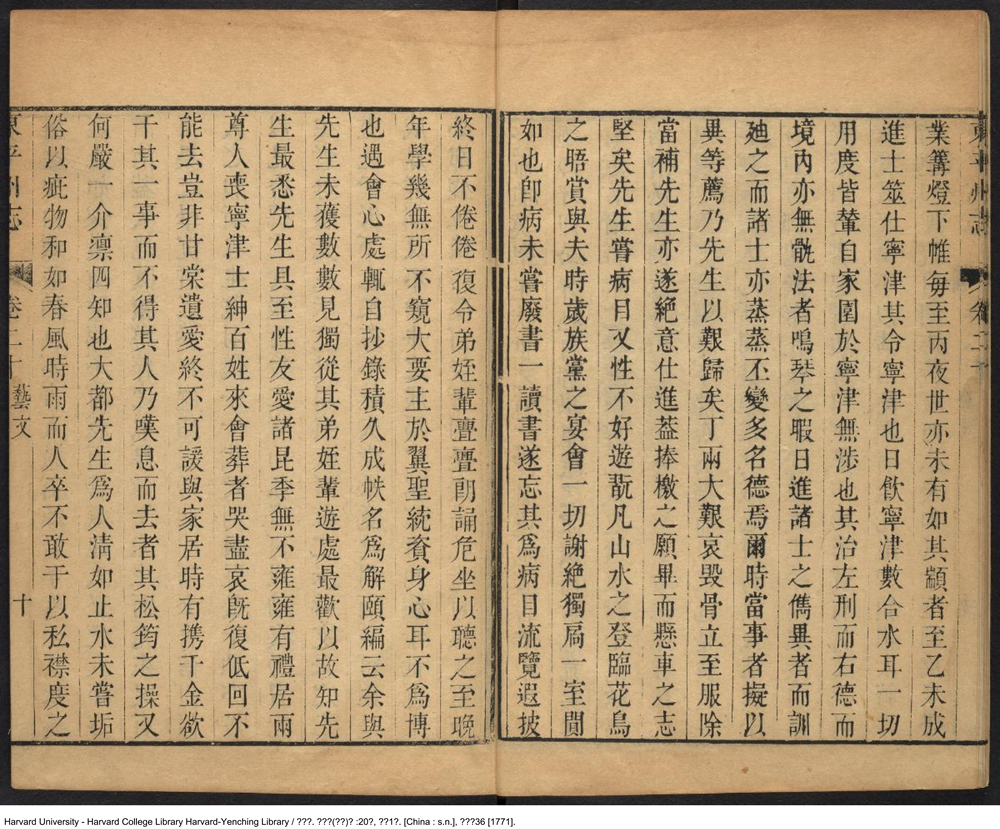 東平州志 卷二十
業篝燈下帷每至丙夜世亦未有如其顓者至乙未成
進士筮仕寧津其令寧津也日飲寧津數合水耳一切
用度皆輦自家園於寧津無涉也其治左刑而右德而
境內亦無骫法者鳴琴之暇日進諸士之儁異者而訓
廸之而諸士亦蒸蒸丕變多名德焉爾時當事者擬以
異等薦乃先生以艱歸矣丁兩大艱哀毀骨立至服除
當補先生亦遂絕意仕進葢捧檄之願畢而懸車之志
堅矣先生嘗病目又性不好遊翫凡山水之登臨花鳥
之晤賞與夫時歲族黨之宴會一切謝絕獨扃一室閒
如也卽病未嘗廢書一讀書遂忘其爲病目流覽遐披
終日不倦倦復令弟姪輩亹亹朗誦危坐以聽之至晚
年學幾無所不窺大要主於翼聖統資身心耳不爲博
也遇會心處輒自抄錄積久成帙名爲解頤編云余與
先生未獲數數見獨從其弟姪輩遊處最歡以故知先
生最悉先生具至性友愛諸昆季無不雍雍有禮居兩
尊人喪寧津士紳百姓來會葬者哭盡哀旣復低回不
能去豈非甘棠遺愛終不可諼與家居時有攜千金欲
干其一事而不得其人乃嘆息而去者其松筠之操又
何嚴一介凜四知也大都先生爲人淸如止水未嘗垢
俗以疵物和如春風時雨而人卒不敢干以私襟度之
東平州志 卷二十 藝文 十
Harvard University - Harvard College Library Harvard-Yenching Library / ???. ???(??)? :20?, ??1?. [China : s.n.], ???36 [1771].